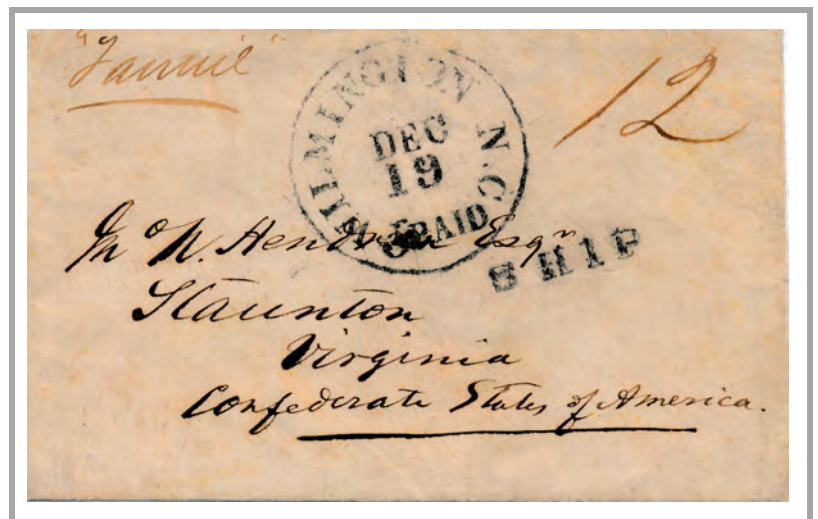 "Fannie"
12
WILMINGTON N.C.
DEC
19
5 PAID
SHIP
Jn° N. Hendren Esqr
Staunton
Virginia
Confederate States of America.